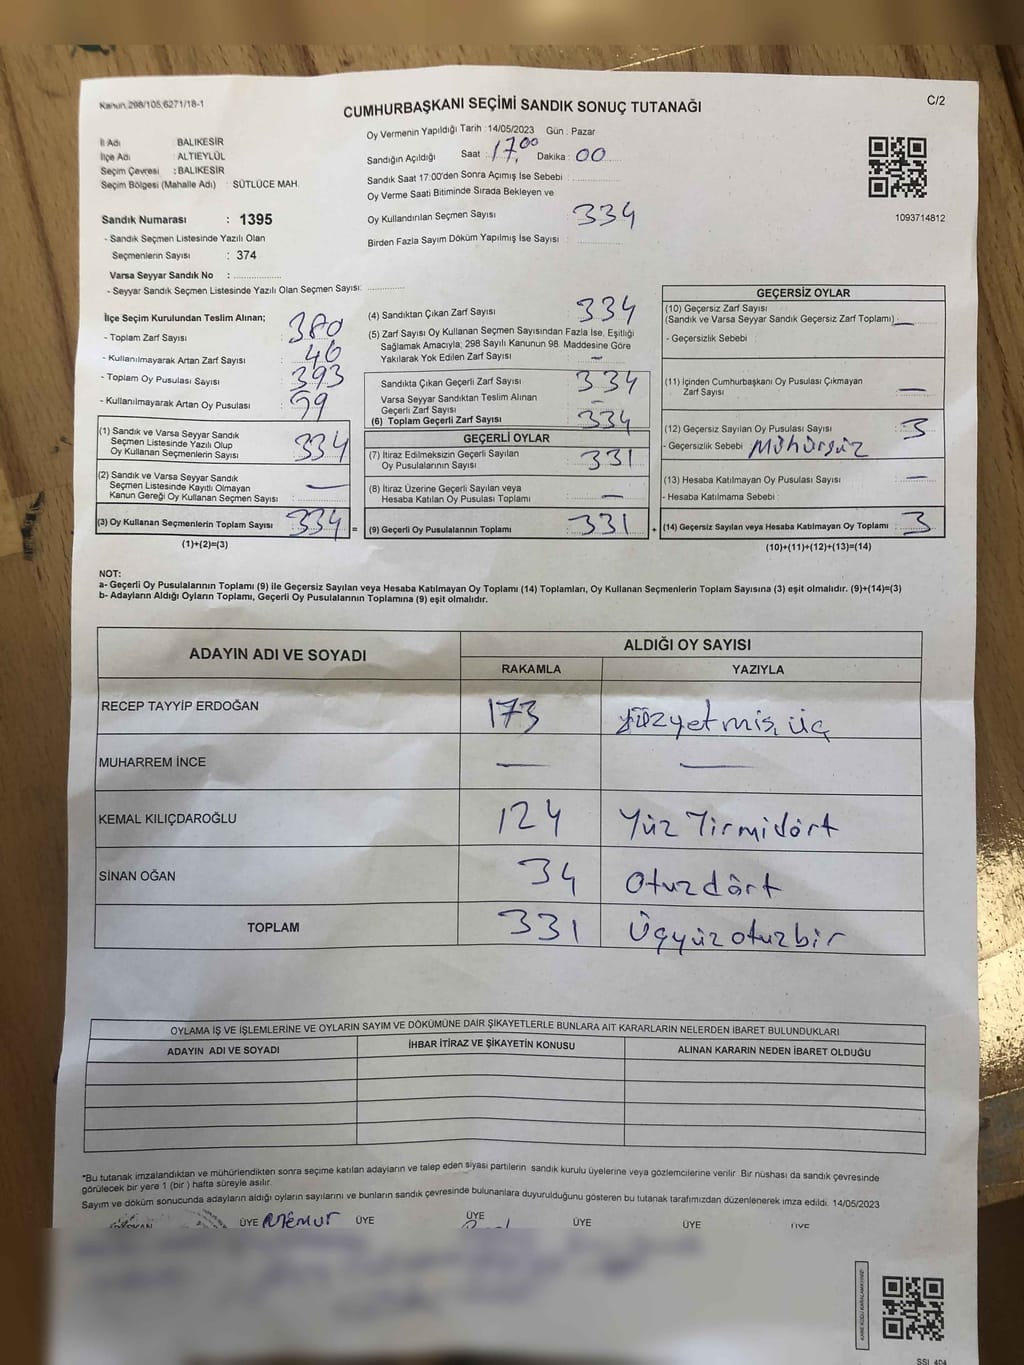 Kanun,298/105,6271/18-1
C/2
CUMHURBAŞKANI SEÇİMİ SANDIK SONUÇ TUTANAĞI
İl Adı : BALIKESİR
İlçe Adı : ALTIEYLÜL
Seçim Çevresi : BALIKESİR
Seçim Bölgesi (Mahalle Adı) : SÜTLÜCE MAH.
Sandık Numarası : 1395
- Sandık Seçmen Listesinde Yazılı Olan
Seçmenlerin Sayısı : 374
Varsa Seyyar Sandık No :
- Seyyar Sandık Seçmen Listesinde Yazılı Olan Seçmen Sayısı:
Oy Vermenin Yapıldığı Tarih :14/05/2023 Gün : Pazar
Sandığın Açıldığı Saat : 17,00 Dakika : 00
Sandık Saat 17:00'den Sonra Açımış İse Sebebi :
Oy Verme Saati Bitiminde Sırada Bekleyen ve
Oy Kullandırılan Seçmen Sayısı : 334
Birden Fazla Sayım Döküm Yapılmış İse Sayısı :
1093714812
İlçe Seçim Kurulundan Teslim Alınan;
- Toplam Zarf Sayısı : 380
- Kullanılmayarak Artan Zarf Sayısı : 46
- Toplam Oy Pusulası Sayısı : 393
- Kullanılmayarak Artan Oy Pusulası : 59
(1) Sandık ve Varsa Seyyar Sandık
Seçmen Listesinde Yazılı Olup
Oy Kullanan Seçmenlerin Sayısı : 334
(2) Sandık ve Varsa Seyyar Sandık
Seçmen Listesinde Kayıtlı Olmayan
Kanun Gereği Oy Kullanan Seçmen Sayısı : —
(3) Oy Kullanan Seçmenlerin Toplam Sayısı : 334 =
(1)+(2)=(3)
(4) Sandıktan Çıkan Zarf Sayısı : 334
(5) Zarf Sayısı Oy Kullanan Seçmen Sayısından Fazla İse, Eşitliği
Sağlamak Amacıyla; 298 Sayılı Kanunun 98. Maddesine Göre
Yakılarak Yok Edilen Zarf Sayısı : —
Sandıkta Çıkan Geçerli Zarf Sayısı : 334
Varsa Seyyar Sandıktan Teslim Alınan
Geçerli Zarf Sayısı : —
(6) Toplam Geçerli Zarf Sayısı : 334
GEÇERLİ OYLAR
(7) İtiraz Edilmeksizin Geçerli Sayılan
Oy Pusulalarının Sayısı : 331
(8) İtiraz Üzerine Geçerli Sayılan veya
Hesaba Katılan Oy Pusulası Toplamı : —
(9) Geçerli Oy Pusulalarının Toplamı : 331 +
GEÇERSİZ OYLAR
(10) Geçersiz Zarf Sayısı
(Sandık ve Varsa Seyyar Sandık Geçersiz Zarf Toplamı) : —
- Geçersizlik Sebebi :
(11) İçinden Cumhurbaşkanı Oy Pusulası Çıkmayan
Zarf Sayısı : —
(12) Geçersiz Sayılan Oy Pusulası Sayısı : 3
- Geçersizlik Sebebi : Mühürsüz
(13) Hesaba Katılmayan Oy Pusulası Sayısı : —
- Hesaba Katılmama Sebebi :
(14) Geçersiz Sayılan veya Hesaba Katılmayan Oy Toplamı : 3
(10)+(11)+(12)+(13)=(14)
NOT:
a- Geçerli Oy Pusulalarının Toplamı (9) ile Geçersiz Sayılan veya Hesaba Katılmayan Oy Toplamı (14) Toplamları, Oy Kullanan Seçmenlerin Toplam Sayısına (3) eşit olmalıdır. (9)+(14)=(3)
b- Adayların Aldığı Oyların Toplamı, Geçerli Oy Pusulalarının Toplamına (9) eşit olmalıdır.
ADAYIN ADI VE SOYADI ALDIĞI OY SAYISI
RAKAMLA YAZIYLA
RECEP TAYYİP ERDOĞAN 173 yüzyetmiş üç
MUHARREM İNCE — —
KEMAL KILIÇDAROĞLU 124 Yüz Yirmidört
SİNAN OĞAN 34 Otuzdört
TOPLAM 331 Üçyüzotuzbir
OYLAMA İŞ VE İŞLEMLERİNE VE OYLARIN SAYIM VE DÖKÜMÜNE DAİR ŞİKAYETLERLE BUNLARA AİT KARARLARIN NELERDEN İBARET BULUNDUKLARI
ADAYIN ADI VE SOYADI İHBAR İTİRAZ VE ŞİKAYETİN KONUSU ALINAN KARARIN NEDEN İBARET OLDUĞU
*Bu tutanak imzalandıktan ve mühürlendikten sonra seçime katılan adayların ve talep eden siyasi partilerin sandık kurulu üyelerine veya gözlemcilerine verilir. Bir nüshası da sandık çevresinde
görülecek bir yere 1 (bir ) hafta süreyle asılır.
Sayım ve döküm sonucunda adayların aldığı oyların sayılarını ve bunların sandık çevresinde bulunanlara duyurulduğunu gösteren bu tutanak tarafımızdan düzenlenerek imza edildi. 14/05/2023
ÜYE Memur ÜYE ÜYE ÜYE ÜYE ÜYE